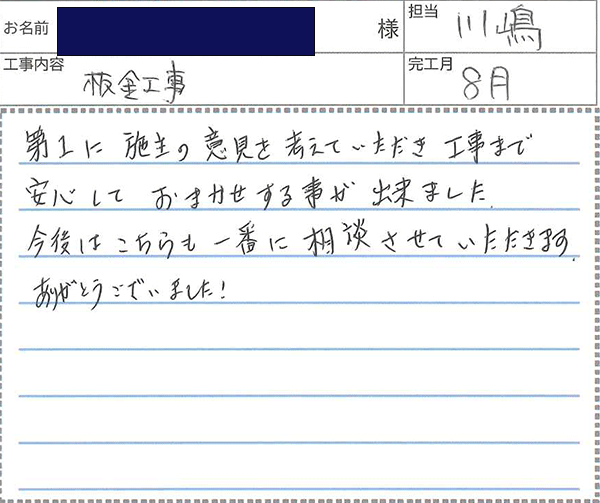 お名前 様 担当 川嶋
工事内容 板金工事 完工月 8月
第1に 施主の 意見を 考えていただき 工事まで
安心して おまかせする事が 出来ました.
今後は こちらも 一番に 相談 させていただきます.
ありがとうございました!